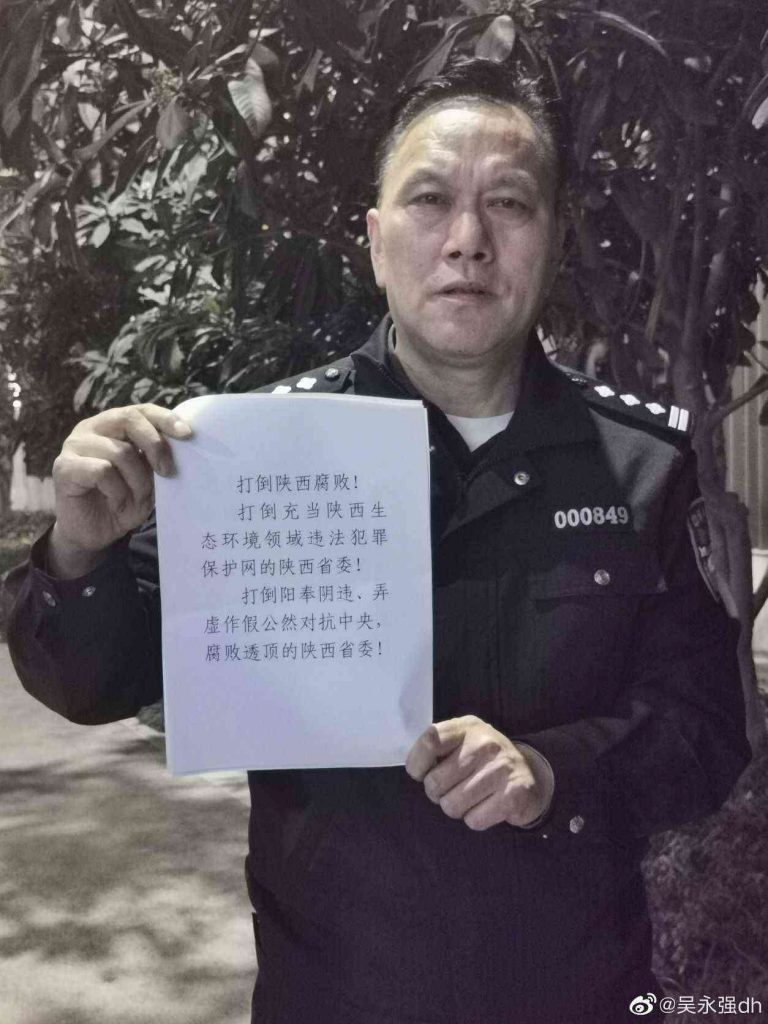 打倒陕西腐败！
打倒充当陕西生
态环境领域违法犯罪
保护网的陕西省委！
打倒阳奉阴违、弄
虚作假公然对抗中央，
腐败透顶的陕西省委！
000849
@吴永强dh